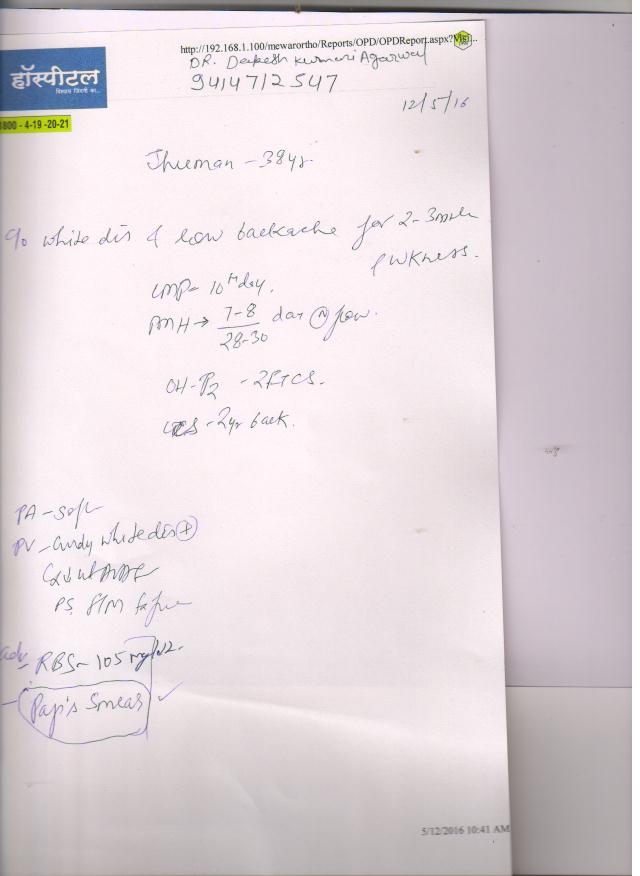 http://192.168.1.100/mewarortho/Reports/OPD/OPDReport.aspx?Visi...
हॉस्पीटल
DR. Deepesh Kumari Agarwal
9414712547
1800 - 4-19 -20-21
12/5/16
Jhuman - 38yr
c/o white dis & low backache for 2-3 month
& WKness.
LMP- 10th day.
PMH → 7-8/28-30 day (N) flow.
OH- P2 - 2FTCS.
LCS - 2yr back.
PA - soft
PV - curdy white dis (+)
PS
adv
- RBS - 105 mg/dl.
- Pap's Smear ✓
5/12/2016 10:41 AM